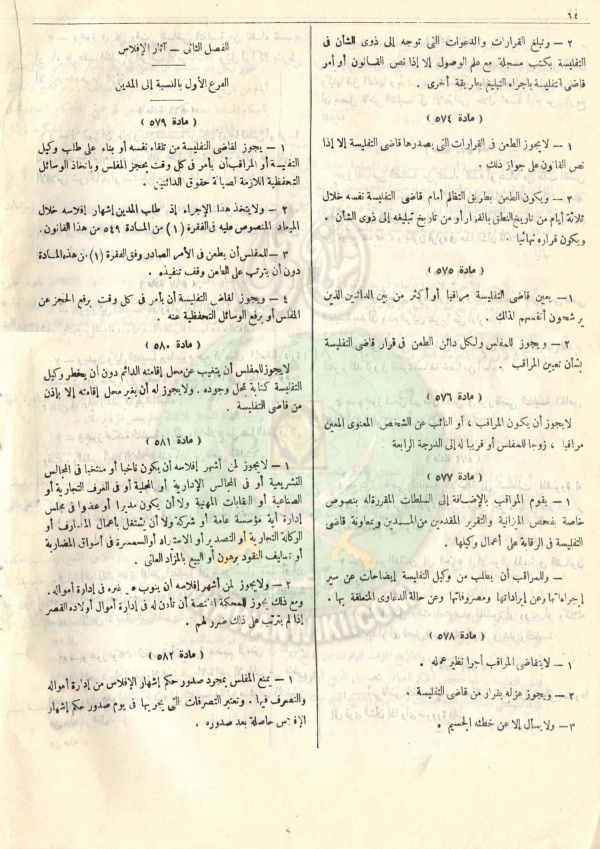 ٦٤
٢ — وتبلغ القرارات والدعوات التى توجه إلى ذوى الشأن فى
التفليسة بكتب مسجلة مع علم الوصول إلا إذا نص القانون أو أمر
قاضى التفليسة باجراء التبليغ بطريقة أخرى .
( مادة ٥٧٤ )
١ — لايجوز الطعن فى القرارات التى يصدرها قاضى التفليسة إلا إذا
نص القانون على جواز ذلك .
٢ — ويكون الطعن بطريق التظلم أمام قاضى التفليسة نفسه خلال
ثلاثة أيام من تاريخ النطق بالقرار أو من تاريخ تبليغه إلى ذوى الشأن .
ويكون قراره نهائيا .
( مادة ٥٧٥ )
١ — يعين قاضى التفليسة مراقبا أو أكثر من بين الدائنين الذين
يرشحون أنفسهم لذلك .
٢ — ويجوز للمفلس ولكل دائن الطعن فى قرار قاضى التفليسة
بشأن تعيين المراقب .
( مادة ٥٧٦ )
لايجوز أن يكون المراقب ، أو النائب عن الشخص المعنوى المعين
مراقبا ، زوجا للمفلس أو قريبا له إلى الدرجة الرابعة
( مادة ٥٧٧ )
١ — يقوم المراقب بالإضافة إلى السلطات المقررة له بنصوص
خاصة بفحص الميزانية والتقرير المقدمين من المدين وبمعاونة قاضى
التفليسة فى الرقابة على أعمال وكيلها .
— وللمراقب أن يطلب من وكيل التفليسة إيضاحات عن سير
إجراءاتها وعن إيراداتها ومصروفاتها وعن حالة الدعاوى المتعلقة بها .
( مادة ٥٧٨ )
١ — لايتقاضى المراقب أجرا نظير عمله .
٢ — ويجوز عزله بقرار من قاضى التفليسة .
٣ — ولايسال إلا عن خطئه الجسيم .
الفصل الثانى — آثار الإفلاس
الفرع الأول بالنسبة إلى المدين
( مادة ٥٧٩ )
١ — يجوز لقاضى التفليسة من تلقاء نفسه أو بناء على طلب وكيل
التفليسة أو المراقب أن يأمر فى كل وقت بحجز المفلس وباتخاذ الوسائل
التحفظية اللازمة لصيانة حقوق الدائنين .
٢ — ولايتخذ هذا الإجراء إذا طلب المدين إشهار إفلاسه خلال
الميعاد المنصوص عليه فى الفقرة (١) من المادة ٥٤٩ من هذا القانون .
٣ — للمفلس أن يطعن فى الأمر الصادر وفق الفقرة (١) من هذه المادة
دون أن يترتب على الطعن وقف تنفيذه .
٤ — ويجوز لقاضى التفليسة أن يأمر فى كل وقت برفع الحجز عن
المفلس أو برفع الوسائل التحفظية عنه .
( مادة ٥٨٠ )
لايجوز للمفلس أن يتغيب عن محل إقامته الدائم دون أن يخطر وكيل
التفليسة كتابة بمحل وجوده . ولايجوز له أن يغير محل إقامته إلا بإذن
من قاضى التفليسة .
( مادة ٥٨١ )
١ — لايجوز لمن أشهر إفلاسه أن يكون ناخبا أو منتخبا فى المجالس
التشريعية أو فى المجالس الإدارية أو المحلية أو فى الغرف التجارية أو
الصناعية أو النقابات المهنية ولا أن يكون مديرا أو عضوا فى مجلس
إدارة أية مؤسسة عامة أو شركة ولا أن يشتغل بأعمال المصارف أو
الوكالة التجارية أو التصدير أو الاستيراد أو السمسرة فى أسواق المضاربة
أو تسليف النقود برهون أو البيع بالمزاد العلنى .
٢ — ولايجوز لمن أشهر إفلاسه أن ينوب عن غيره فى إدارة أمواله .
ومع ذلك يجوز للمحكمة المختصة أن تأذن له فى إدارة أموال أولاده القصر
إذا لم يترتب على ذلك ضرر لهم .
( مادة ٥٨٢ )
١ — يمنع المفلس بمجرد صدور حكم إشهار الإفلاس من إدارة أمواله
والتصرف فيها . وتعتبر التصرفات التى يجريها فى يوم صدور حكم إشهار
الإفلاس حاصلة بعد صدوره .